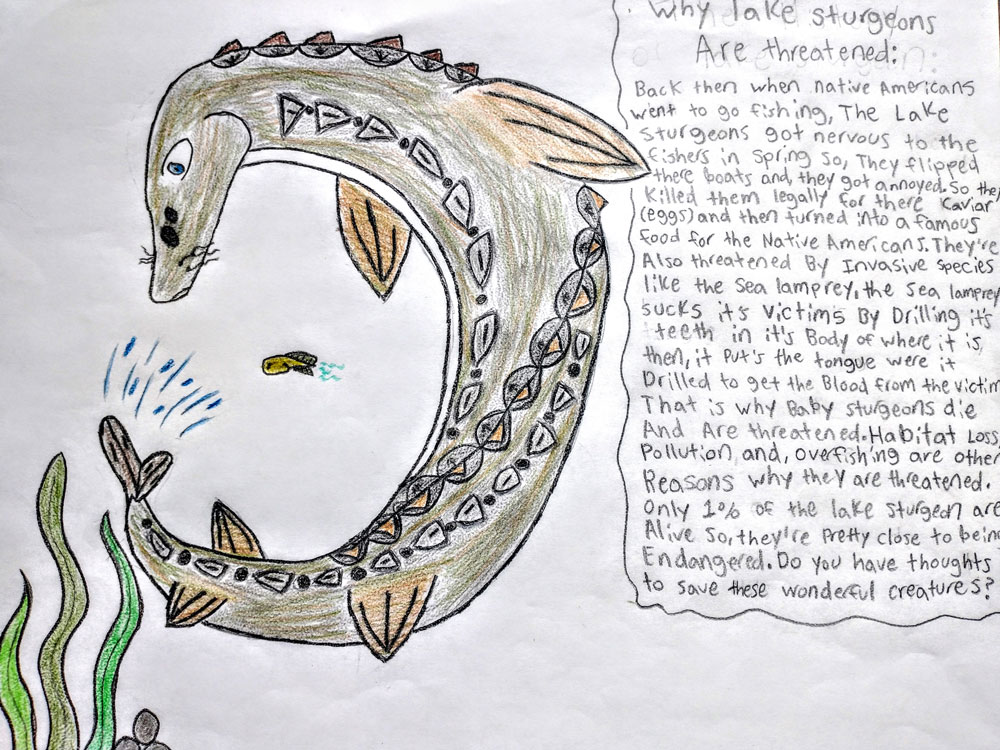 Why lake sturgeons
Are threatened:
Back then when Native Americans
went to go fishing, The Lake
sturgeons got nervous to the
fishers in spring so, They flipped
there boats and, they got annoyed. So they
Killed them legally for there Caviar
(eggs) and then turned into a famous
food for the Native Americans. They're
Also threatened By Invasive species
like the Sea lamprey, the sea lamprey
sucks it's victims By Drilling it's
teeth in it's Body of where it is,
then, it Put's the tongue were it
Drilled to get the Blood from the victim
That is why Baby sturgeons die
And Are threatened. Habitat Loss,
Pollution and, overfishing are other
Reasons why they are threatened.
Only 1% of the lake sturgeon are
Alive so, they're Pretty close to being
Endangered. Do you have thoughts
to save these wonderful creatures?